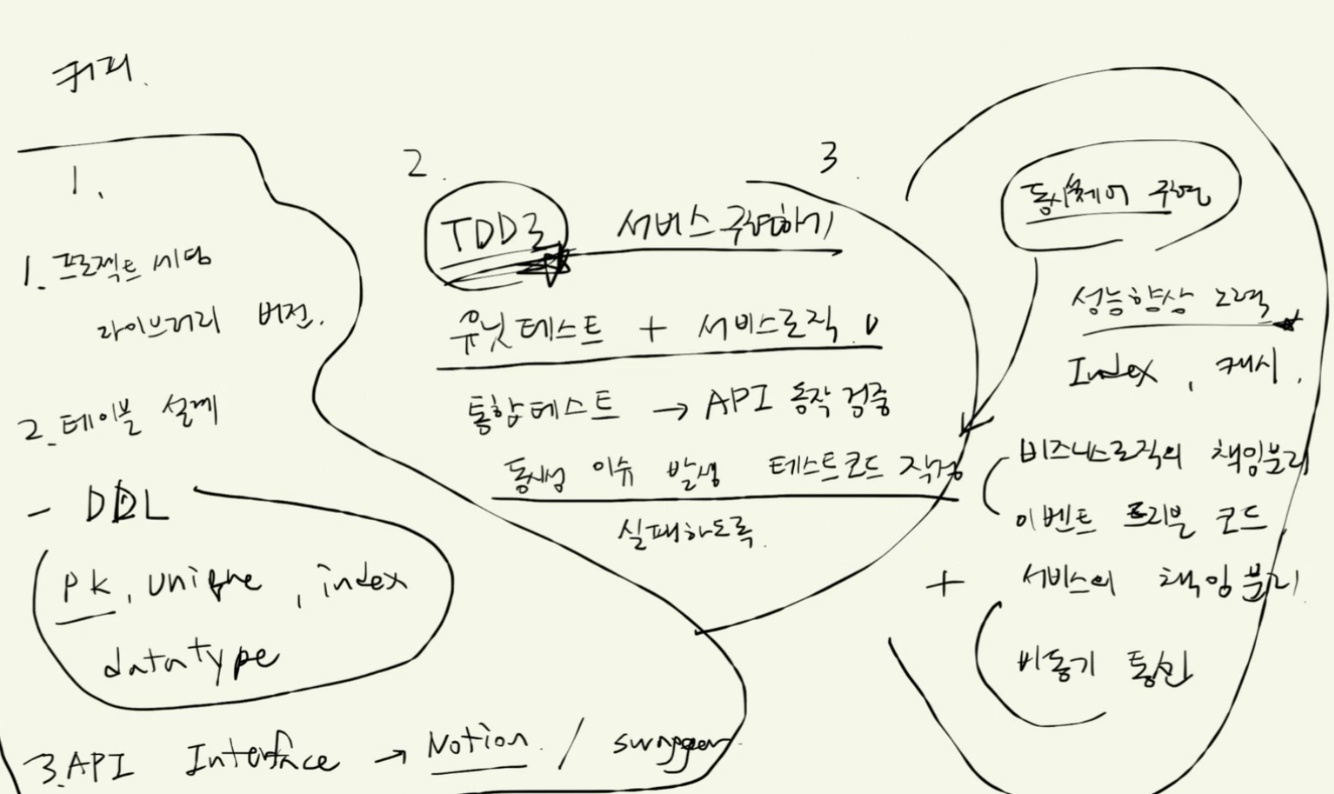 커피.
1.
1. 프로젝트 세팅
라이브러리 버전.
2. 테이블 설계
- DDL
PK, unique, index
datatype
3. API Interface → Notion. / swagger
2.
TDD로 서비스 구현하기
유닛 테스트 + 서비스로직.
통합테스트 → API 동작 검증
동시성 이슈 발생 테스트코드 작성
실패하도록.
3.
동시제어 구현
성능향상 노력
Index, 캐시.
비즈니스로직의 책임분리
이벤트 드리븐 코드
+ 서비스의 책임 분리
비동기 통신